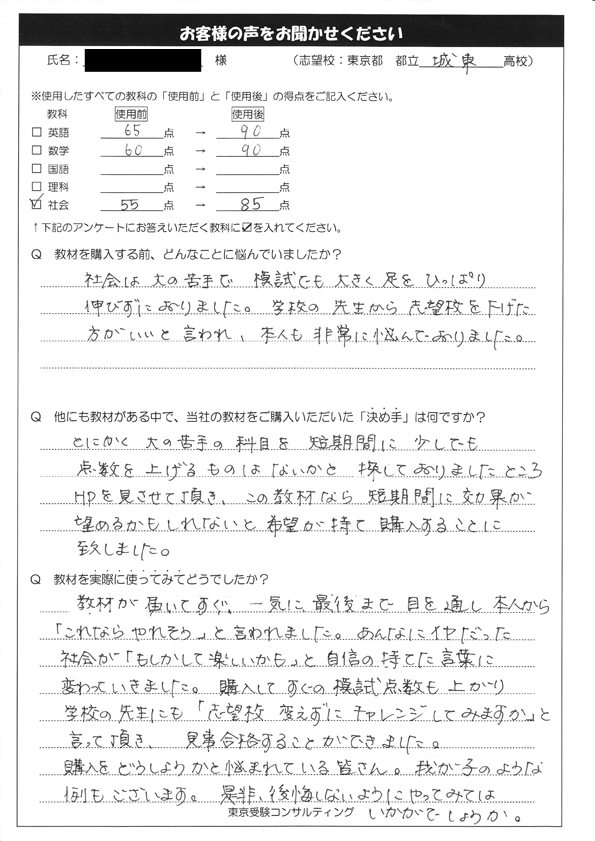 お客様の声をお聞かせください
氏名： 様 （志望校：東京都 都立 城東 高校）
※使用したすべての教科の「使用前」と「使用後」の得点をご記入ください。
教科 使用前 使用後
□ 英語 65 点 → 90 点
□ 数学 60 点 → 90 点
□ 国語 点 → 点
□ 理科 点 → 点
☑ 社会 55 点 → 85 点
↑下記のアンケートにお答えいただく教科に☑を入れてください。
Q 教材を購入する前、どんなことに悩んでいましたか？
社会は大の苦手で 模試でも大きく足をひっぱり
伸びずにおりました。学校の先生から志望校を下げた
方がいいと言われ、本人も非常に悩んでおりました。
Q 他にも教材がある中で、当社の教材をご購入いただいた「決め手」は何ですか？
とにかく大の苦手の科目を 短期間に少しでも
点数を上げるものはないかと 探しておりましたところ
HPを見させて頂き、この教材なら短期間に効果が
望めるかもしれないと希望が持て購入することに
致しました。
Q 教材を実際に使ってみてどうでしたか？
教材が届いてすぐ、一気に最後まで目を通し本人から
「これならやれそう」と言われました。あんなにイヤだった
社会が「もしかして楽しいかも」と自信の持てた言葉に
変わっていきました。購入してすぐの模試点数も上がり
学校の先生にも「志望校変えずにチャレンジしてみますか」と
言って頂き、見事合格することができました。
購入をどうしようかと悩まれている皆さん。我が子のような
例もございます。是非、後悔しないようにやってみては
いかがでしょうか。
東京受験コンサルティング